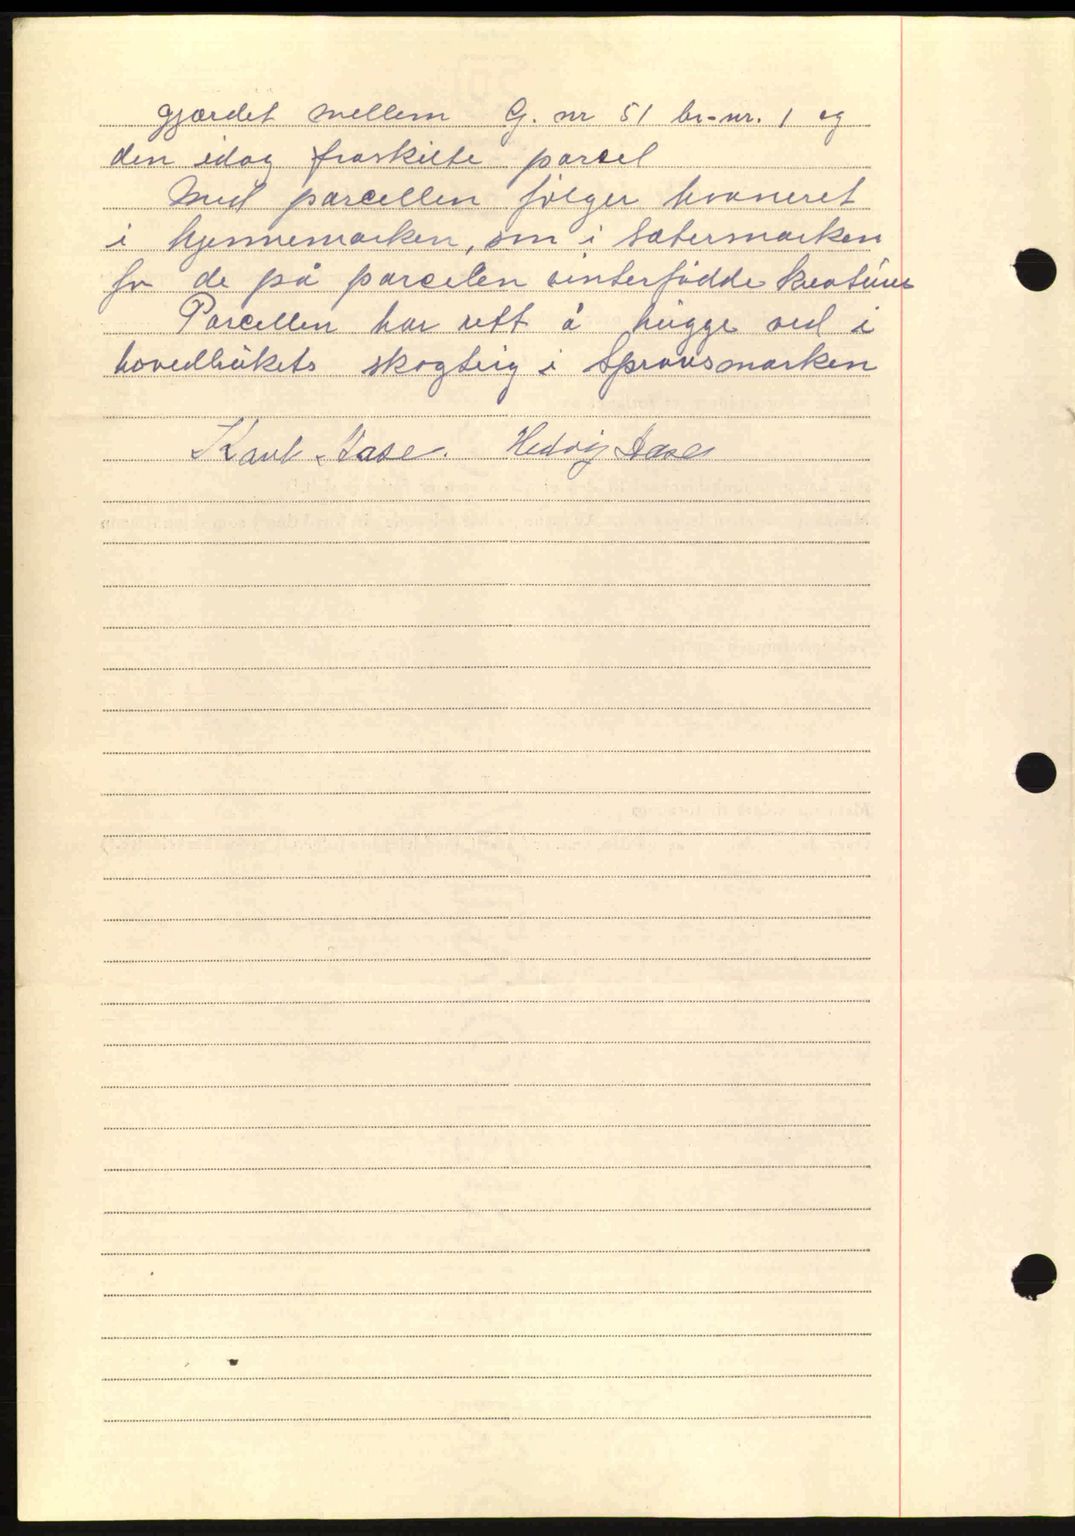 gjærdet mellem G. nr 51 br-nr. 1 og
den idag fraskilte parcel
Med parcellen følger havneret
i hjemmemarken, som i Sætermarken
for de på parcelen vinterfødde kreatúrer
Parcellen har rett å húgge ved i
hovedbrúkets skogteig i
Hedvig Aase